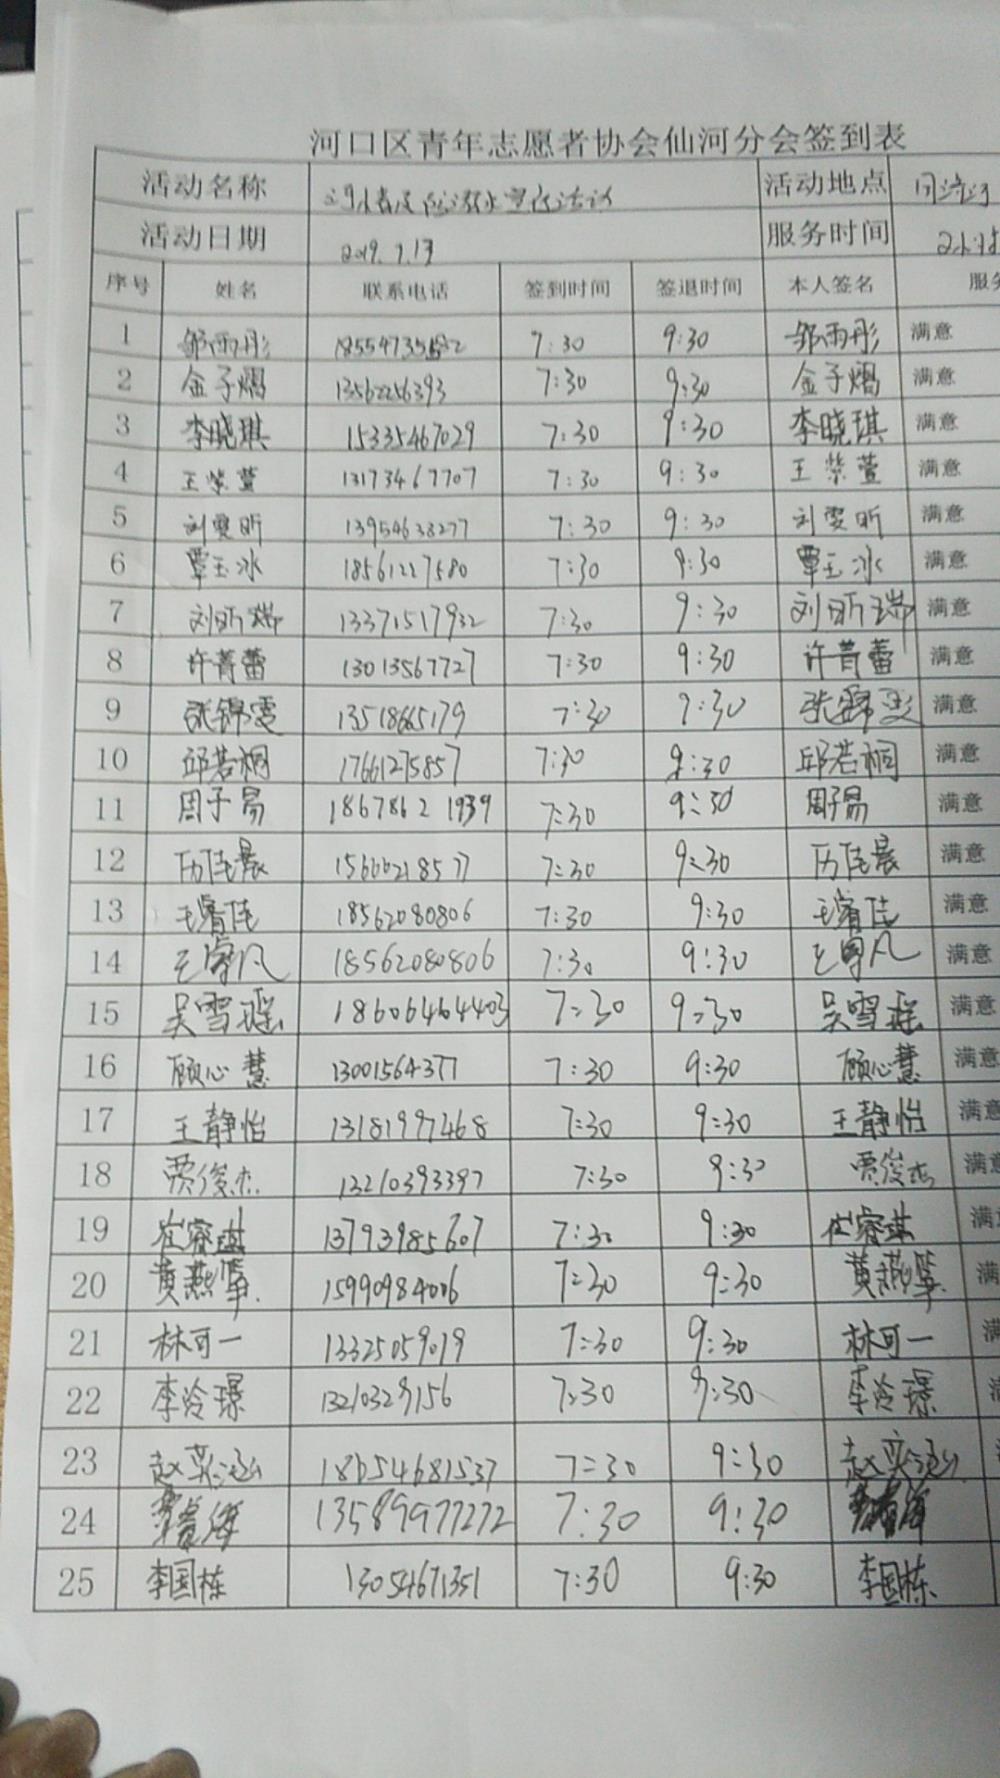 河口区青年志愿者协会仙河分会签到表
活动名称 活动地点
活动日期 2019.7.13 服务时间 2小时
序号 姓名 联系电话 签到时间 签退时间 本人签名 服务
1 邹雨彤 7:30 9:30 邹雨彤 满意
2 金子熠 13562256393 7:30 9:30 金子熠 满意
3 李晓琪 15335467029 7:30 9:30 李晓琪 满意
4 王紫萱 13173467707 7:30 9:30 王紫萱 满意
5 刘雯昕 13954638277 7:30 9:30 刘雯昕 满意
6 覃玉冰 18561227580 7:30 9:30 覃玉冰 满意
7 刘昕瑞 13371517932 7:30 9:30 刘昕瑞 满意
8 许菁蕾 13013567727 7:30 9:30 许菁蕾 满意
9 张锦雯 13518665179 7:30 9:30 张锦雯 满意
10 邱若桐 17661275857 7:30 9:30 邱若桐 满意
11 周子易 18678621939 7:30 9:30 周子易 满意
12 历佳晨 15666218577 7:30 9:30 历佳晨 满意
13 王睿佳 18562080806 7:30 9:30 王睿佳 满意
14 王睿凡 18562080806 7:30 9:30 王睿凡 满意
15 吴雪瑶 18606464403 7:30 9:30 吴雪瑶 满意
16 顾心慧 13001564377 7:30 9:30 顾心慧 满意
17 王静怡 13181997468 7:30 9:30 王静怡 满意
18 贾俊杰 13210393397 7:30 9:30 贾俊杰 满意
19 崔睿琪 13793985607 7:30 9:30 崔睿琪 满
20 15990984006 7:30 9:30 满
21 林可一 13325059019 7:30 9:30 林可一 满
22 李泠璟 13210329156 7:30 9:30 李泠璟
23 赵奕泓 18654681537 7:30 9:30 赵奕泓
24 13589977272 7:30 9:30
25 李国栋 13054671351 7:30 9:30 李国栋